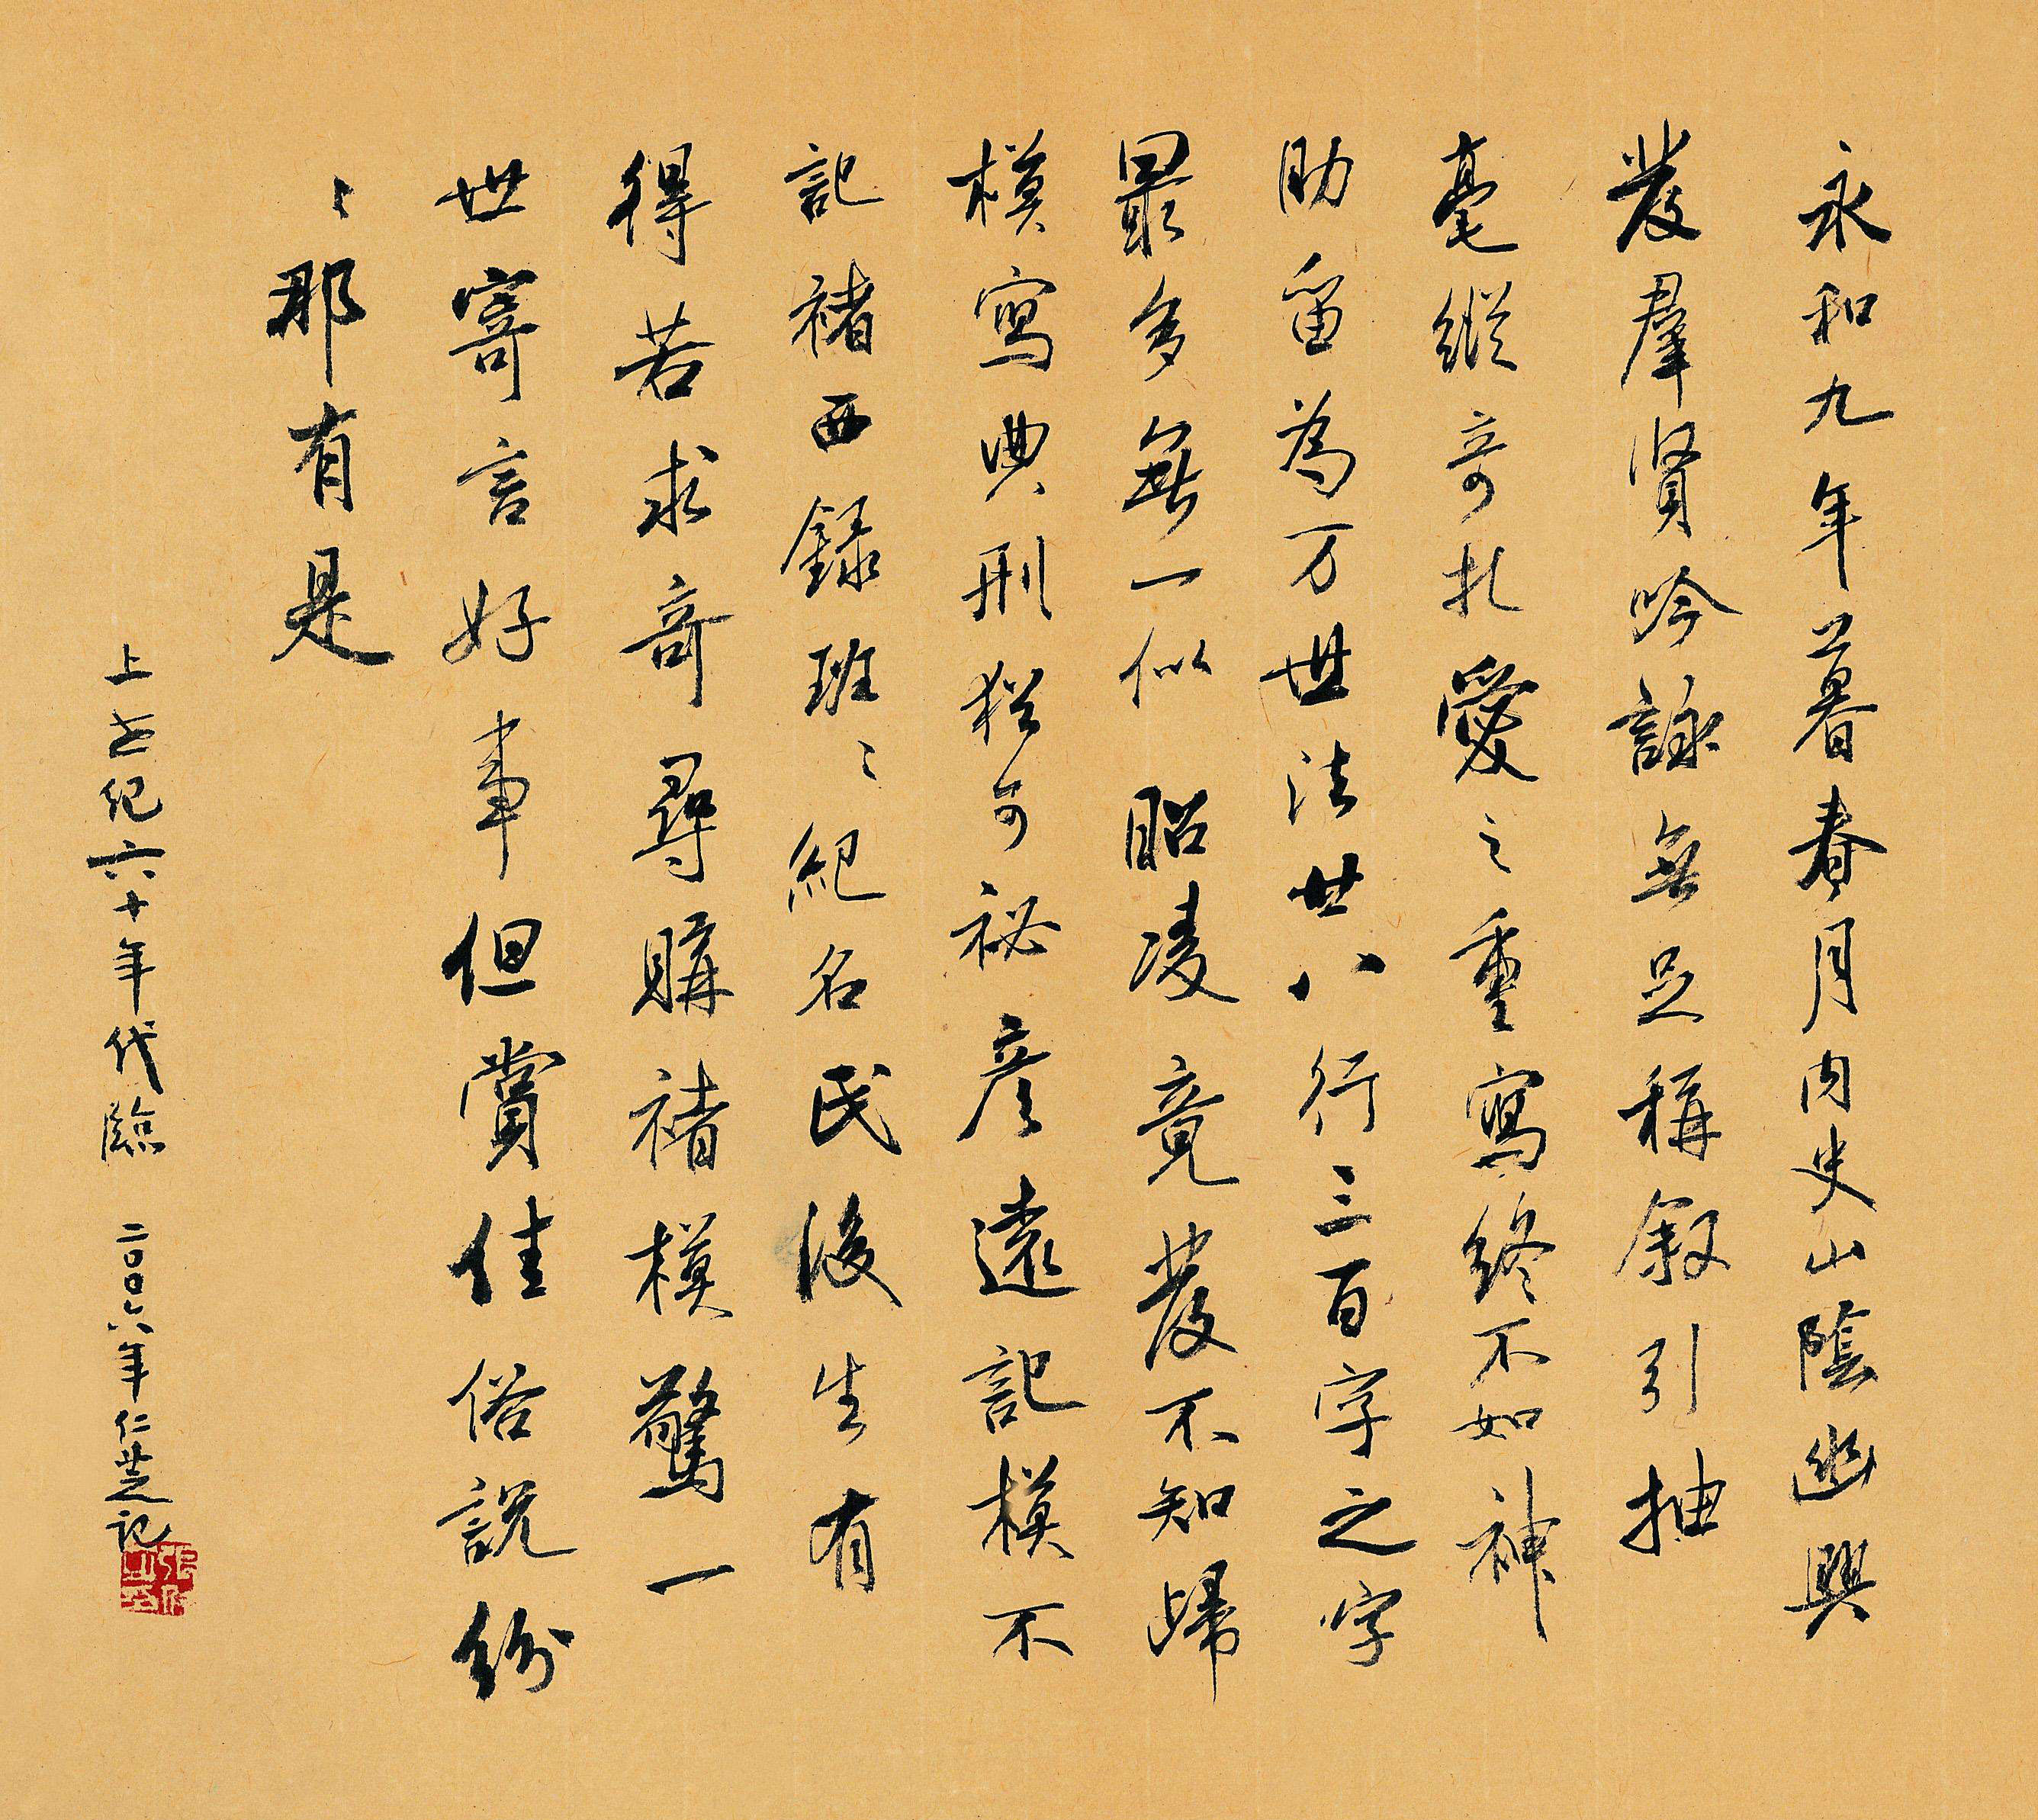 永和九年暮春月内史山陰幽興
發羣賢吟詠無足稱叙引抽
毫縱奇札愛之重寫終不如神
助留為万世法廿八行三百字之字
最多無一似昭凌竟發不知歸
模寫典刑猶可秘彦遠記模不
記褚西録班〻紀名民後生有
得若求奇尋購褚模驚一
世寄言好事但賞佳俗說紛
〻那有是
上世纪六十年代臨 二〇〇六年仁芝记